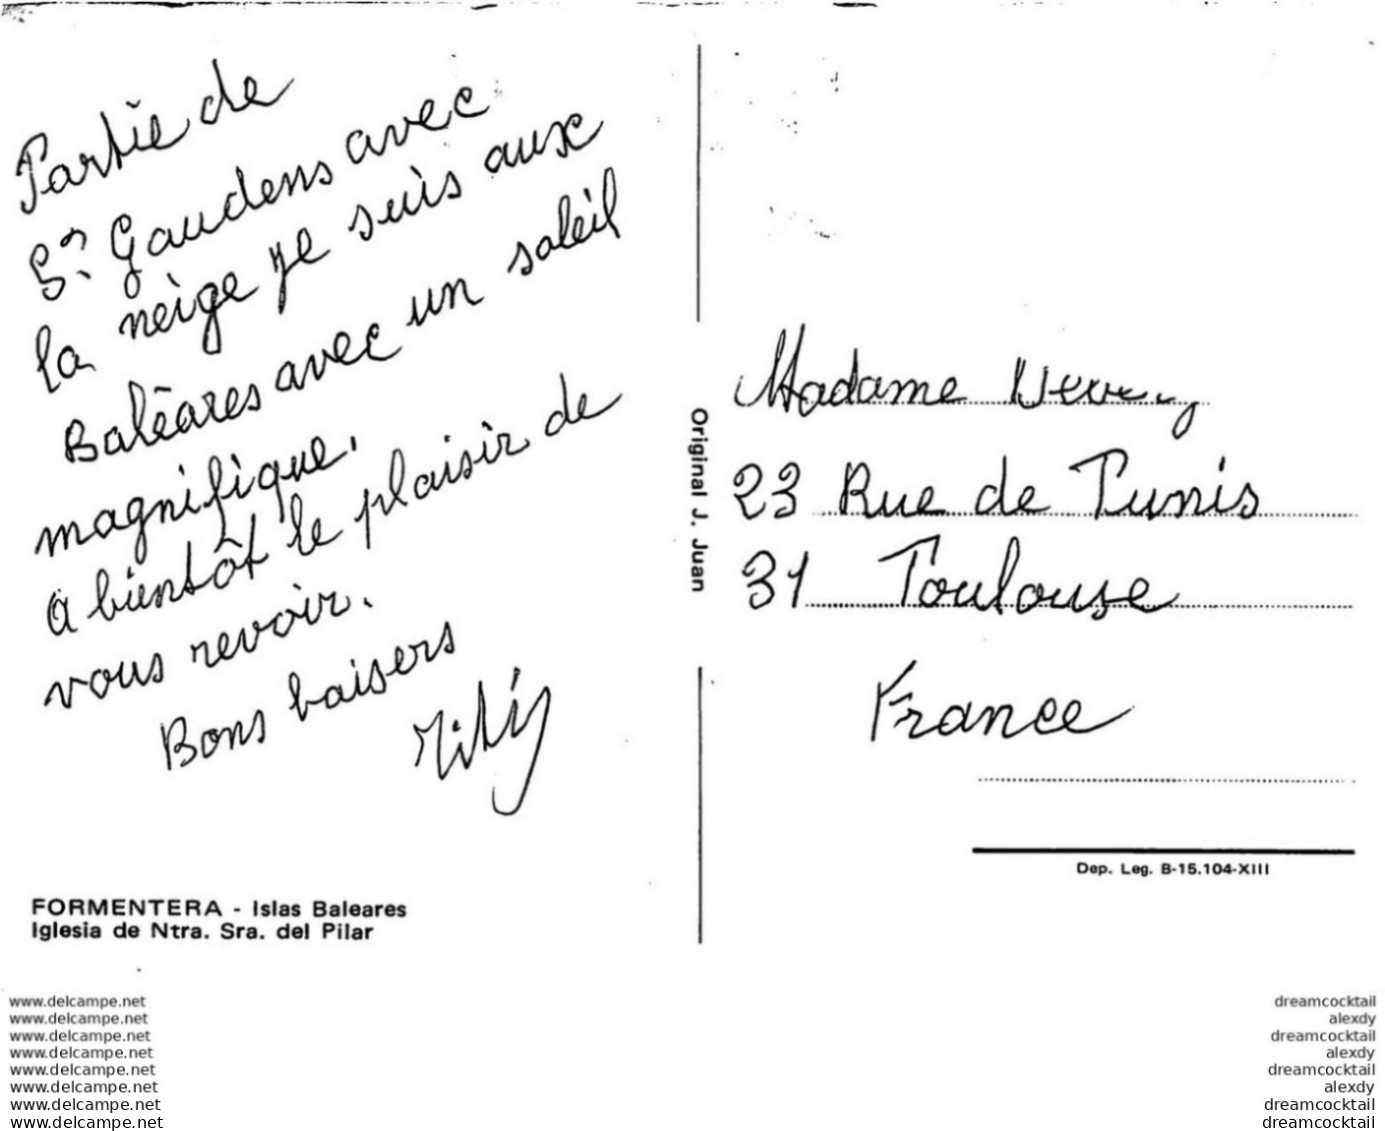 Partie de
St Gaudens avec
la neige je suis aux
Baléares avec un soleil
magnifique.
A bientôt le plaisir de
vous revoir.
Bons baisers
FORMENTERA - Islas Baleares
Iglesia de Ntra. Sra. del Pilar
Original J. Juan
Madame
23 Rue de Tunis
31 Toulouse
France
Dep. Leg. B-15.104-XIII
www.delcampe.net
www.delcampe.net
www.delcampe.net
www.delcampe.net
www.delcampe.net
www.delcampe.net
www.delcampe.net
www.delcampe.net
dreamcocktail
alexdy
dreamcocktail
alexdy
dreamcocktail
alexdy
dreamcocktail
dreamcocktail